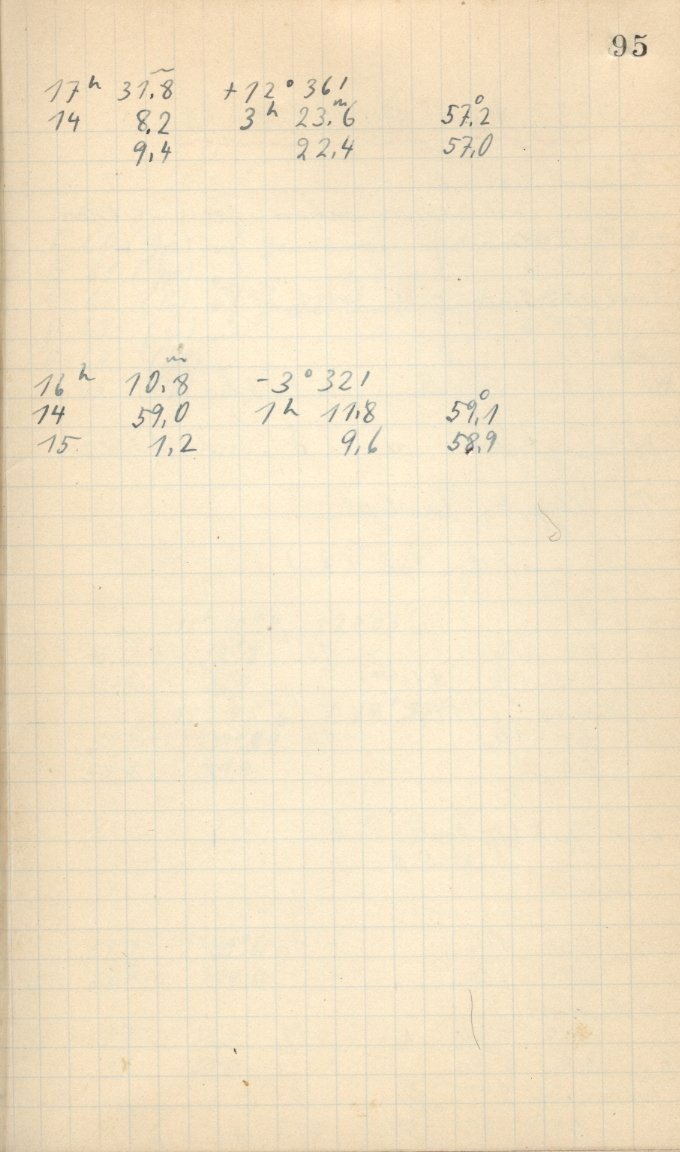 95
17ʰ 31,8ᵐ +12° 36'
14 8,2 3ʰ 23,6ᵐ 57,2°
9,4 22,4 57,0
16ʰ 10,8ᵐ -3° 32'
14 59,0 1ʰ 11,8 59,1°
15 1,2 9,6 58,9